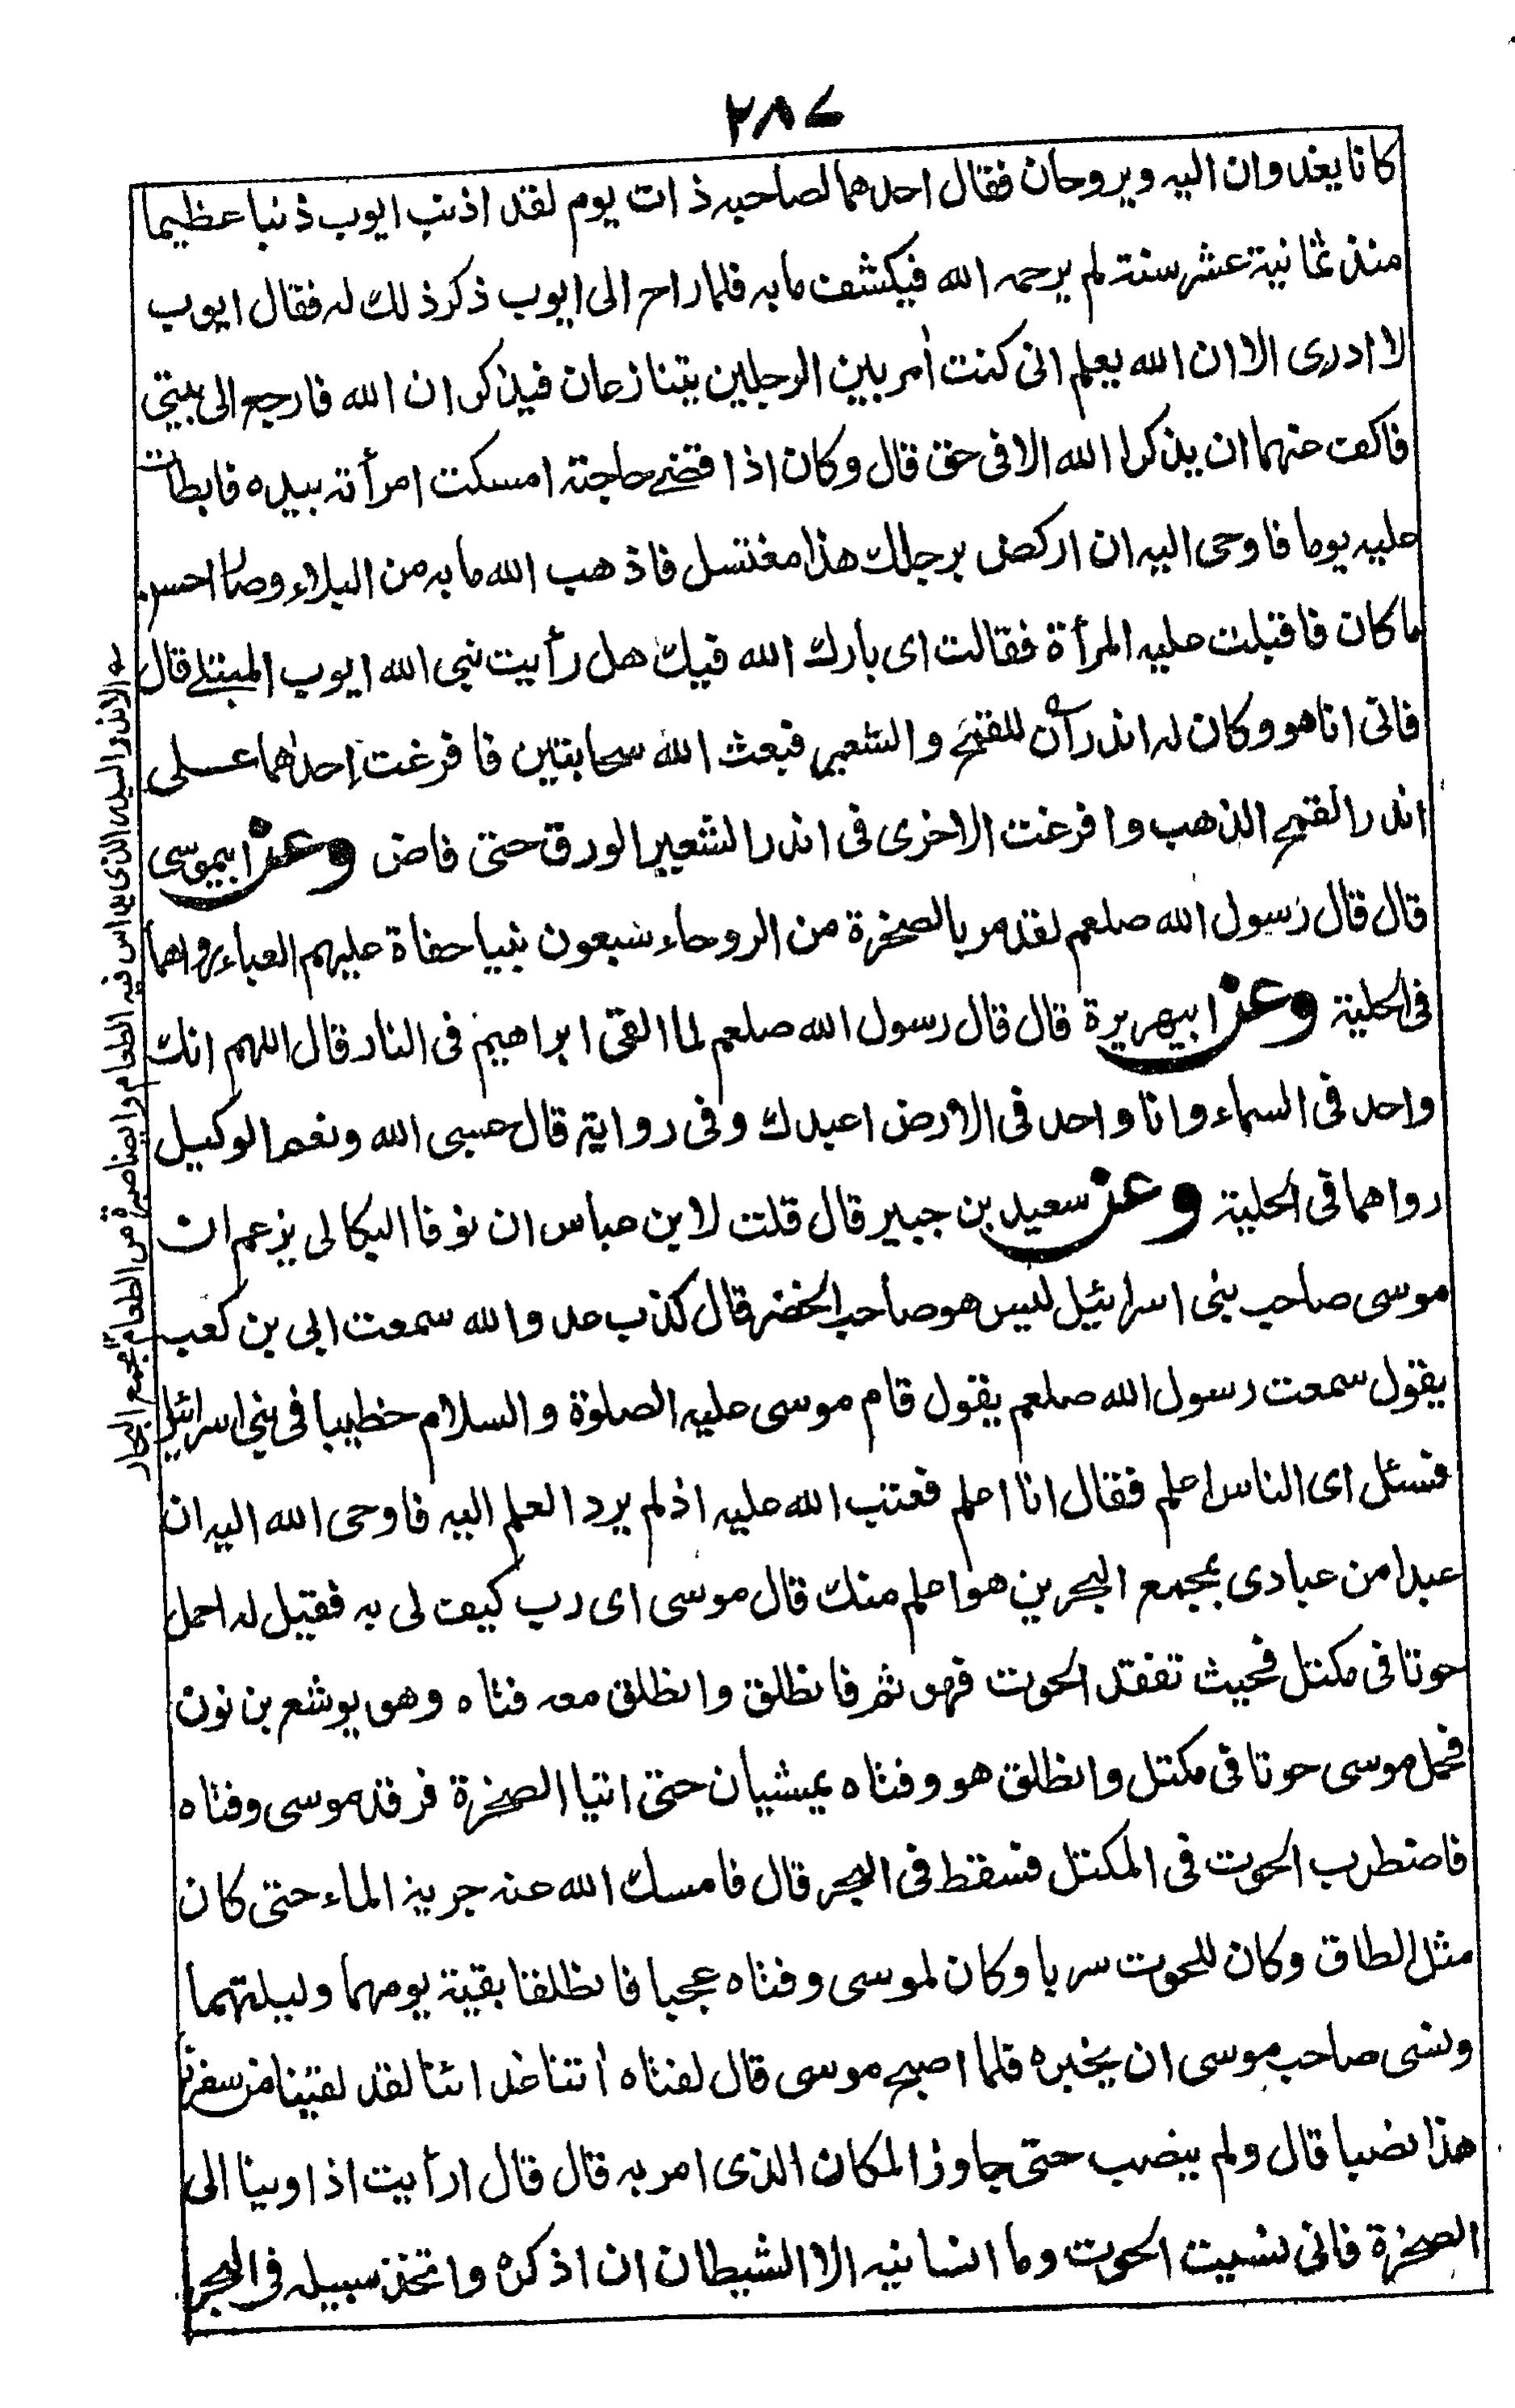 ٢٨٧
كانا يغدوان اليه ويروحان فقال احدهما لصاحبه ذات يوم لقد اذنب ايوب ذنبا عظيما
منذ ثمانية عشر سنة لم يرحمه الله فيكشف ما به فلما راح الى ايوب ذكر ذلك له فقال ايوب
لا ادرى الا ان الله يعلم انى كنت أمر بين الرجلين يتنازعان فيذكران الله فارجع الى بيتى
فاكف عنهما ان يذكرا الله الا فى حق قال وكان اذا قضے حاجته امسكت امرأته بيده فابطات
عليه يوما فاوحى اليه ان اركض برجلك هذا مغتسل فاذهب الله ما به من البلاء وصار احسن
ما كان فاقبلت عليه المرأة فقالت اى بارك الله فيك هل رأيت نبى الله ايوب المبتلے قال
فانى انا هو وكان له اندران للقمح والشعير فبعث الله سحابتين فافرغت إحداهما عــلى
اندر القمح الذهب وافرغت الاخرى فى اندر الشعير الورق حتى فاض وعن ابيموسى
قال قال رسول الله صلعم لقد مر بالصخرة من الروحاء سبعون نبيا حفاة عليهم العباء رواهما
فى الحلية وعن ابيهريرة قال قال رسول الله صلعم لما القى ابراهيم فى النار قال اللهم انك
واحد فى السماء وانا واحد فى الارض اعبدك وفى رواية قال حسبى الله ونعم الوكيل
رواهما فى الحلية وعن سعيد بن جبير قال قلت لابن عباس ان نوفا البكالى يزعم ان
موسى صاحب بنى اسرائيل ليس هو صاحب الخضر قال كذب عدو الله سمعت ابى بن كعب
يقول سمعت رسول الله صلعم يقول قام موسى عليه الصلوة والسلام خطيبا فى بنى اسرائيل
فسئل اى الناس اعلم فقال انا اعلم فعتب الله عليه اذ لم يرد العلم اليه فاوحى الله اليه ان
عبدا من عبادى بمجمع البحرين هو اعلم منك قال موسى اى رب كيف لى به فقيل له احمل
حوتا فى مكتل فحيث تفقد الحوت فهو ثم فانطلق وانطلق معه فتاه وهو يوشع بن نون
فحمل موسى حوتا فى مكتل وانطلق هو وفتاه يمشيان حتى اتيا الصخرة فرقد موسى وفتاه
فاضطرب الحوت فى المكتل فسقط فى البحر قال فامسك الله عنه جرية الماء حتى كان
مثل الطاق وكان للحوت سربا وكان لموسى وفتاه عجبا فانطلقا بقية يومهما وليلتهما
ونسى صاحب موسى ان يخبره فلما اصبح موسى قال لفتاه أتنا غداءنا لقد لقينا من سفرنا
هذا نصبا قال ولم ينصب حتى جاوز المكان الذى امر به قال قال ارأيت اذ اوينا الى
الصخرة فانى نسيت الحوت وما انسانيه الا الشيطان ان اذكره واتخذ سبيله فى البحر
له الاندر البيدر الذى يداس فيه الطعام وايضا صبرة من الطعام ١٢ مجمع البحار